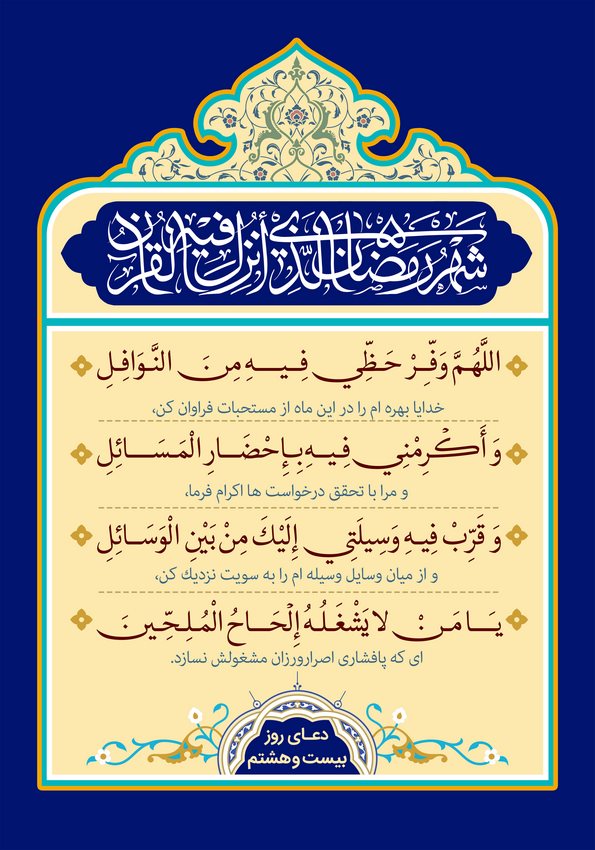 شهر رمضان الذي أنزل فيه القرآن
اللَّهُمَّ وَفِّرْ حَظِّي فِيهِ مِنَ النَّوَافِلِ
خدایا بهره ام را در این ماه از مستحبات فراوان کن،
وَ أَكْرِمْنِي فِيهِ بِإِحْضَارِ الْمَسَائِلِ
و مرا با تحقق درخواست ها اکرام فرما،
وَ قَرِّبْ فِيهِ وَسِيلَتِي إِلَيْكَ مِنْ بَيْنِ الْوَسَائِلِ
و از میان وسایل وسیله ام را به سویت نزدیك کن،
يَا مَنْ لا يَشْغَلُهُ إِلْحَاحُ الْمُلِحِّينَ
ای که پافشاری اصرارورزان مشغولش نسازد.
دعای روز
بیست و هشتم